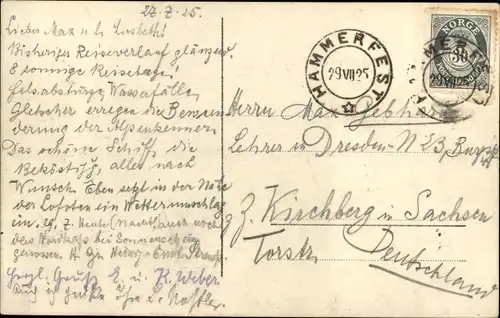 27.7.25.
Lieber Max u. l. Lisbeth!
Bisheriger Reiseverlauf glänzend.
8 sonnige Reisetage!
Felsabstürze, Wasserfälle,
Gletscher erregen die Bewun-
derung der Alpenkenner.
Das schöne Schiff, die
Beköstig., alles nach
Wunsch. Eben setzt in der Nähe
der Lofoten ein Wetterumschlag
ein. 29.7. Heute (Nacht) auch noch
das Nordkap bei Sonnenschein
genossen. H. Gr.
Herzl. Gruß E. u. K. Weber
HAMMERFEST
29 VII 25
NORGE
30
HAMMERFEST
29 VII 25
Herrn Max Gebhardt
Lehrer in Dresden-N 23,
z. Z. Kirchberg in Sachsen
Torstr.
Deutschland